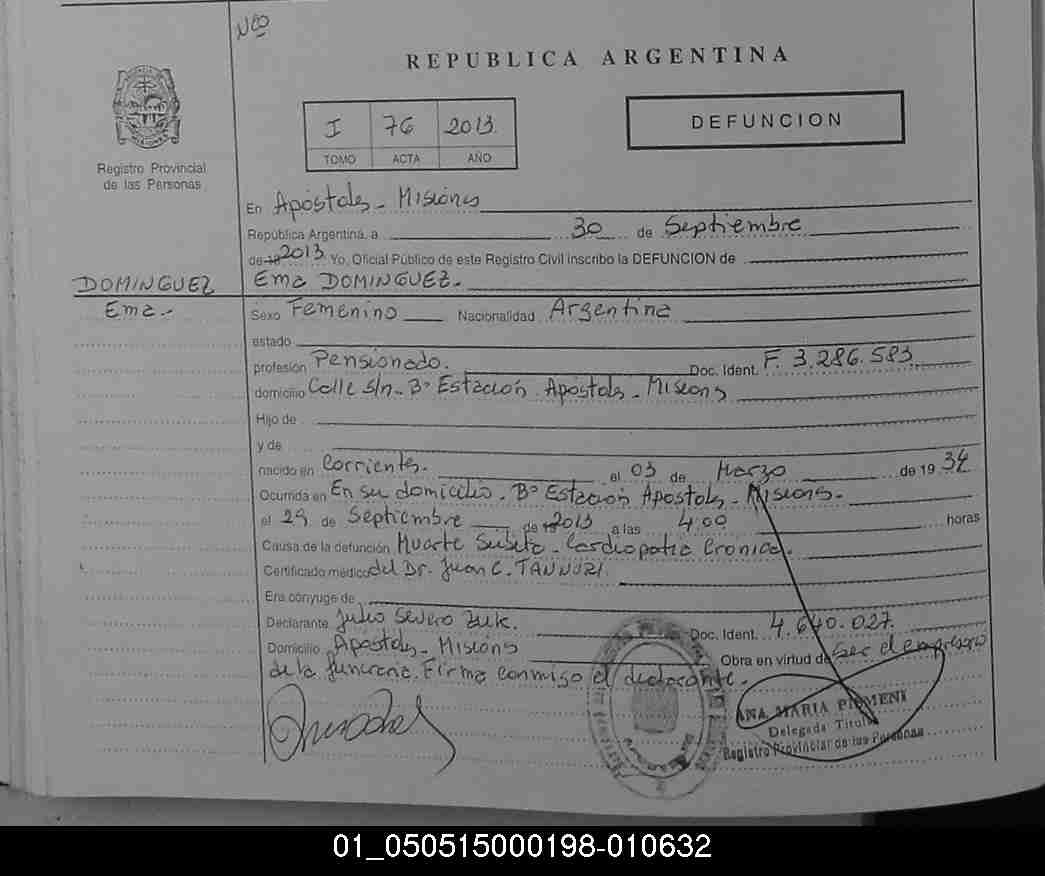 Nco
REPUBLICA ARGENTINA
I 76 2013
TOMO ACTA AÑO
DEFUNCION
Registro Provincial
de las Personas
En Apóstoles - Misiones
República Argentina, a 30 de Septiembre
de 19 2013 Yo, Oficial Público de este Registro Civil inscribo la DEFUNCION de
DOMINGUEZ Ema DOMINGUEZ.
Ema.- Sexo Femenino Nacionalidad Argentina
estado
profesión Pensionado. Doc. Ident. F. 3.286.583
domicilio Calle s/n - Bº Estación. Apóstoles - Misiones
Hijo de
y de
nacido en Corrientes. el 03 de Marzo de 19 34
Ocurrida en En su domicilio. Bº Estación Apóstoles - Misiones.
el 29 de Septiembre de 19 2013 a las 4.00 horas
Causa de la defunción Muerte Subita - Cardiopatia Cronica.
Certificado médico del Dr. Juan C. TANNURI.
Era cónyuge de
Declarante Julio Severo Zuk. Doc. Ident. 4.640.027.
Domicilio Apóstoles - Misiones Obra en virtud de Ser el empresario
de la funeraria. Firma conmigo el declarante.
ANA MARIA PIRMENI
Delegada Titular
Registro Provincial de las Personas
01_050515000198-010632